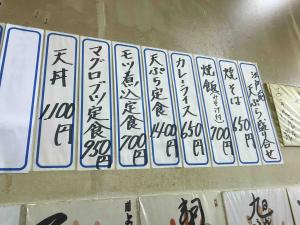 天ぷら盛り合せ
焼そば 650円
焼飯(みそ汁付) 700円
カレーライス 650円
天ぷら定食 1400円
モツ煮込定食 700円
マグロブツ定食 950円
天丼 1100円
旭